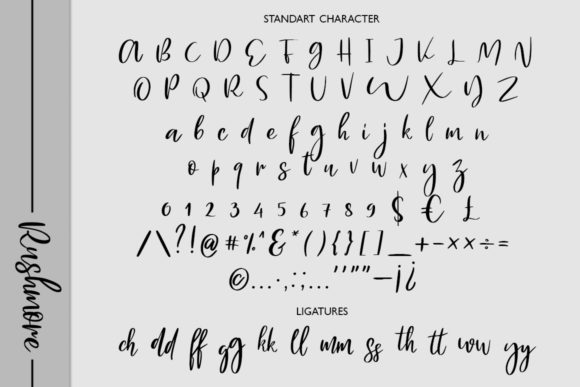 Rushmore
STANDART CHARACTER
A B C D E F G H I J K L M N
O P Q R S T U V W X Y Z
a b c d e f g h i j k l m n
o p q r s t u v w x y z
0 1 2 3 4 5 6 7 8 9 $ € £
/\?!@#%^&*(){}[]_+-××÷=
©...·,:;...''""–¡¿
LIGATURES
ch dd ff gg kk ll mm ss th tt ww yy